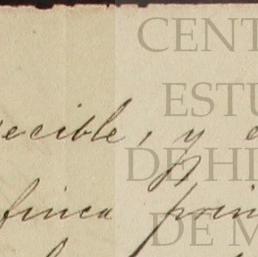 CENT
ESTU
ecible, y
DE HI
finca prin
DE M